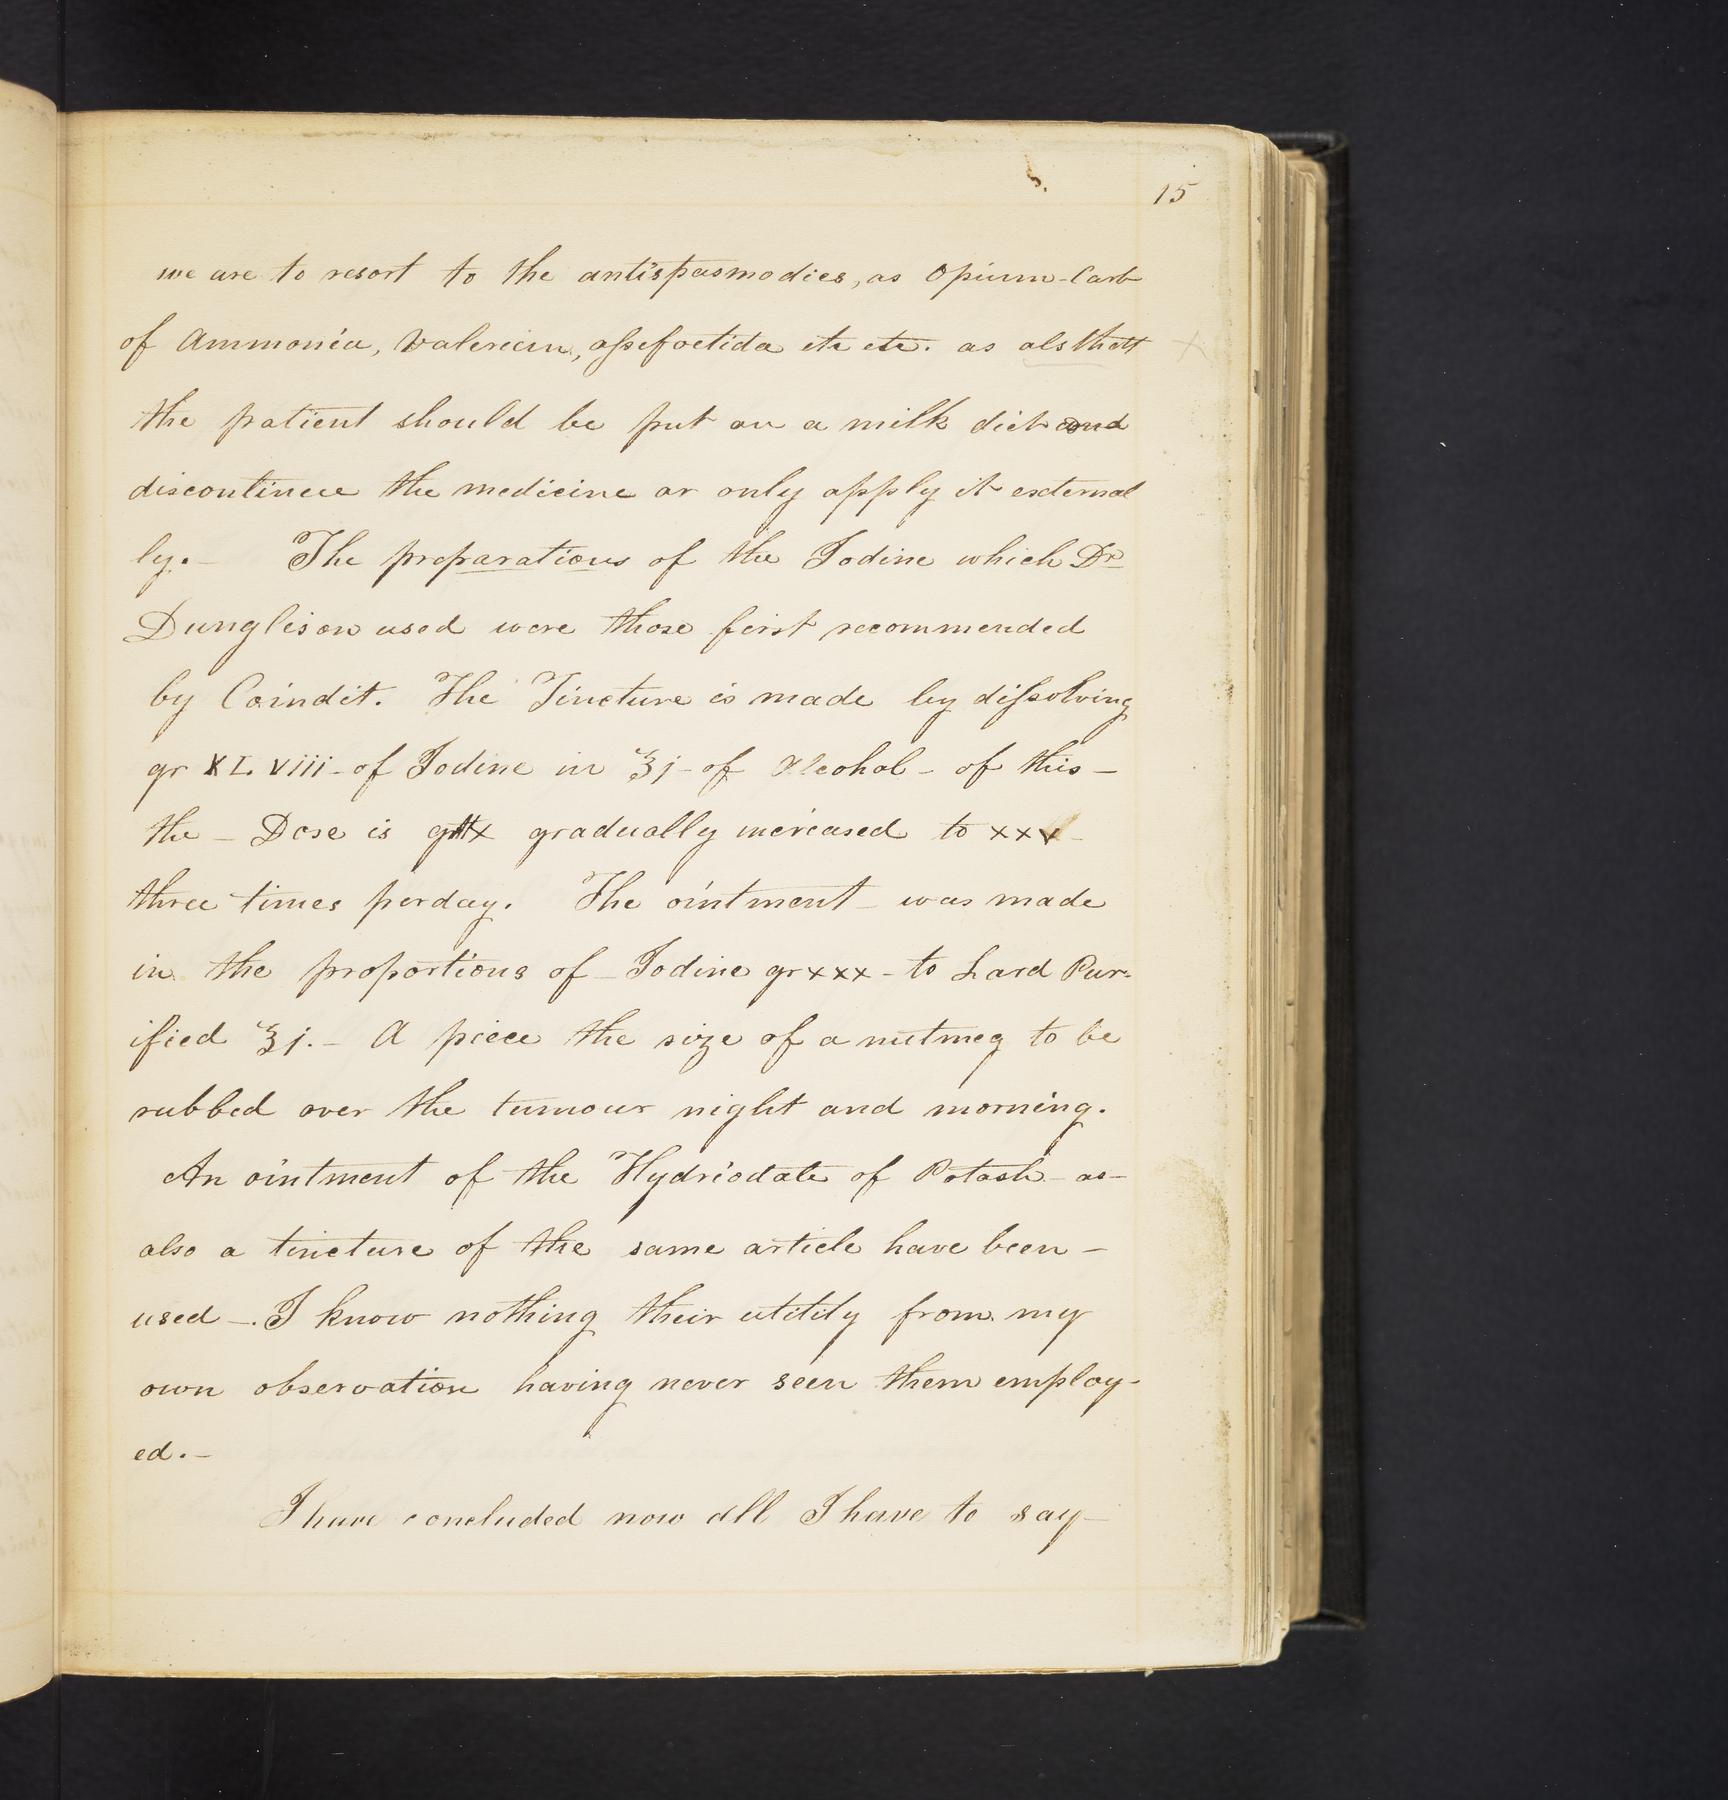 15
we are to resort to the antispasmodics, as Opium-Carb
of Ammonia, Valerian, assefoetida etc etc. as als that
the patient should be put on a milk diet and
discontinue the medicine or only apply it external
ly.- The preparations of the Iodine which Dr
Dunglison used were those first recommended
by Coindit. The Tincture is made by dissolving
gr XLVIII-of Iodine in ℥j-of Alcohol-of this-
the-Dose is gradually increased to xxx-
three times perday. The ointment-was made
in the proportions of-Iodine grxxx-to Lard Pur-
ified ℥j.- A piece the size of a nutmeg to be
rubbed over the tumour night and morning.
An ointment of the Hydriodate of Potash-as-
also a tincture of the same article have been-
used-.I know nothing their utitily from my
own observation having never seen them employ-
ed.-
I have concluded now all I have to say-